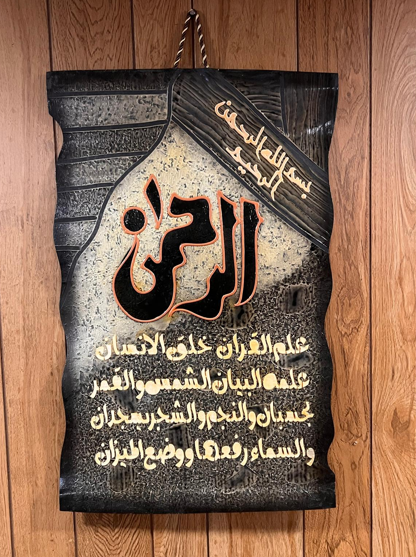 بسم الله الرحمن
الرحيم
الرحمن
علم القران خلق الانسان
علمه البيان الشمس والقمر
بحسبان والنجم والشجر يسجدان
والسماء رفعها ووضع الميزان